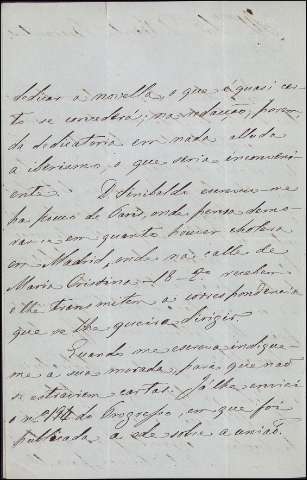 dedicar a novella, o que é quasi cer-
to se concederá; na redacção, porem,
da dedicatoria em nada alluda
a iberismo, o que seria inconveni-
ente. D. Sinibaldo escreveu-me
ha pouco de Paris, onde pensa demo-
rar-se em quanto houver cholera
em Madrid, onde na calle de
Maria Cristina - 18 - 2º recebem
e lhe transmitem a correspondencia
que se lhe queira dirigir
Quando me escreva indique-
me a sua morada, para que não
se extraviem cartas. Já lhe enviei
o nº do Progresso, em que foi
publicada a sobre a união.